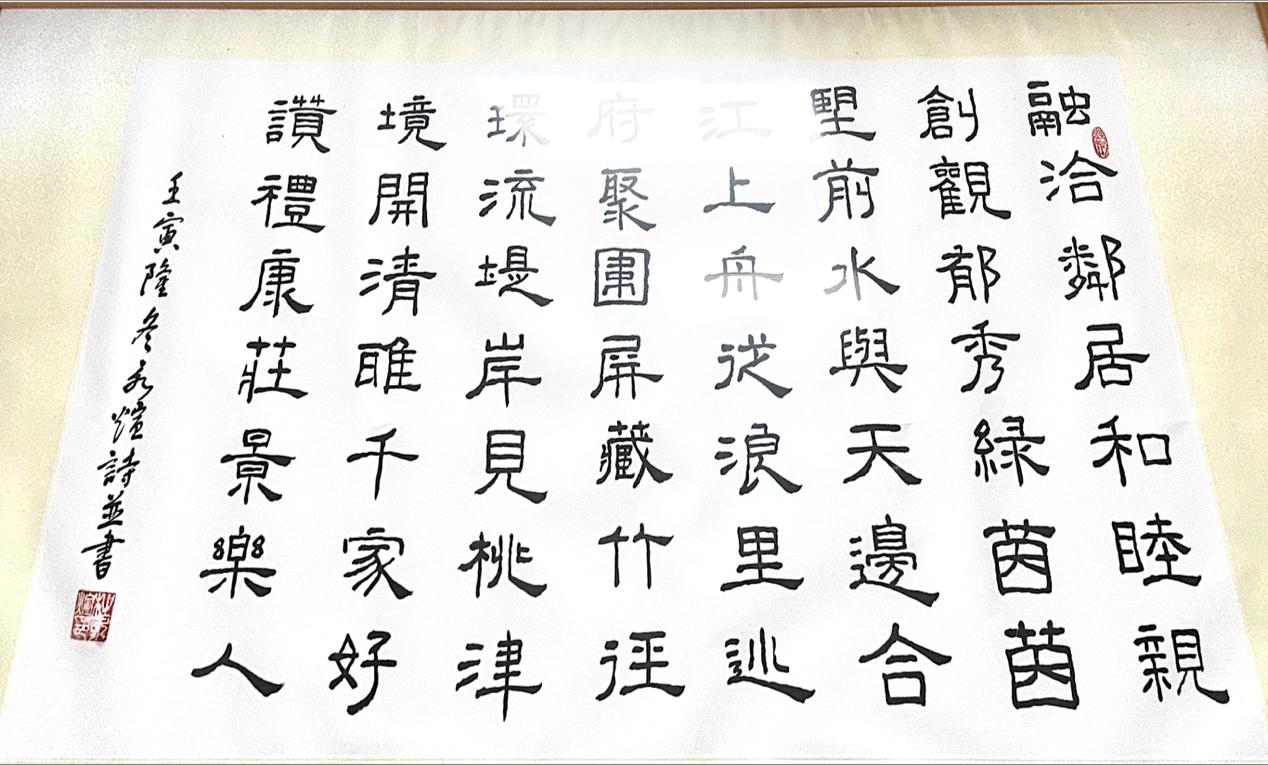 融洽鄰居和睦親
創觀郁秀緑茵茵
墅前水與天邊合
江上舟從浪里逃
府聚圍屏藏竹徑
環流堤岸見桃津
境開清雎千家好
讚禮康莊景樂人
壬寅隆冬永煊詩並書